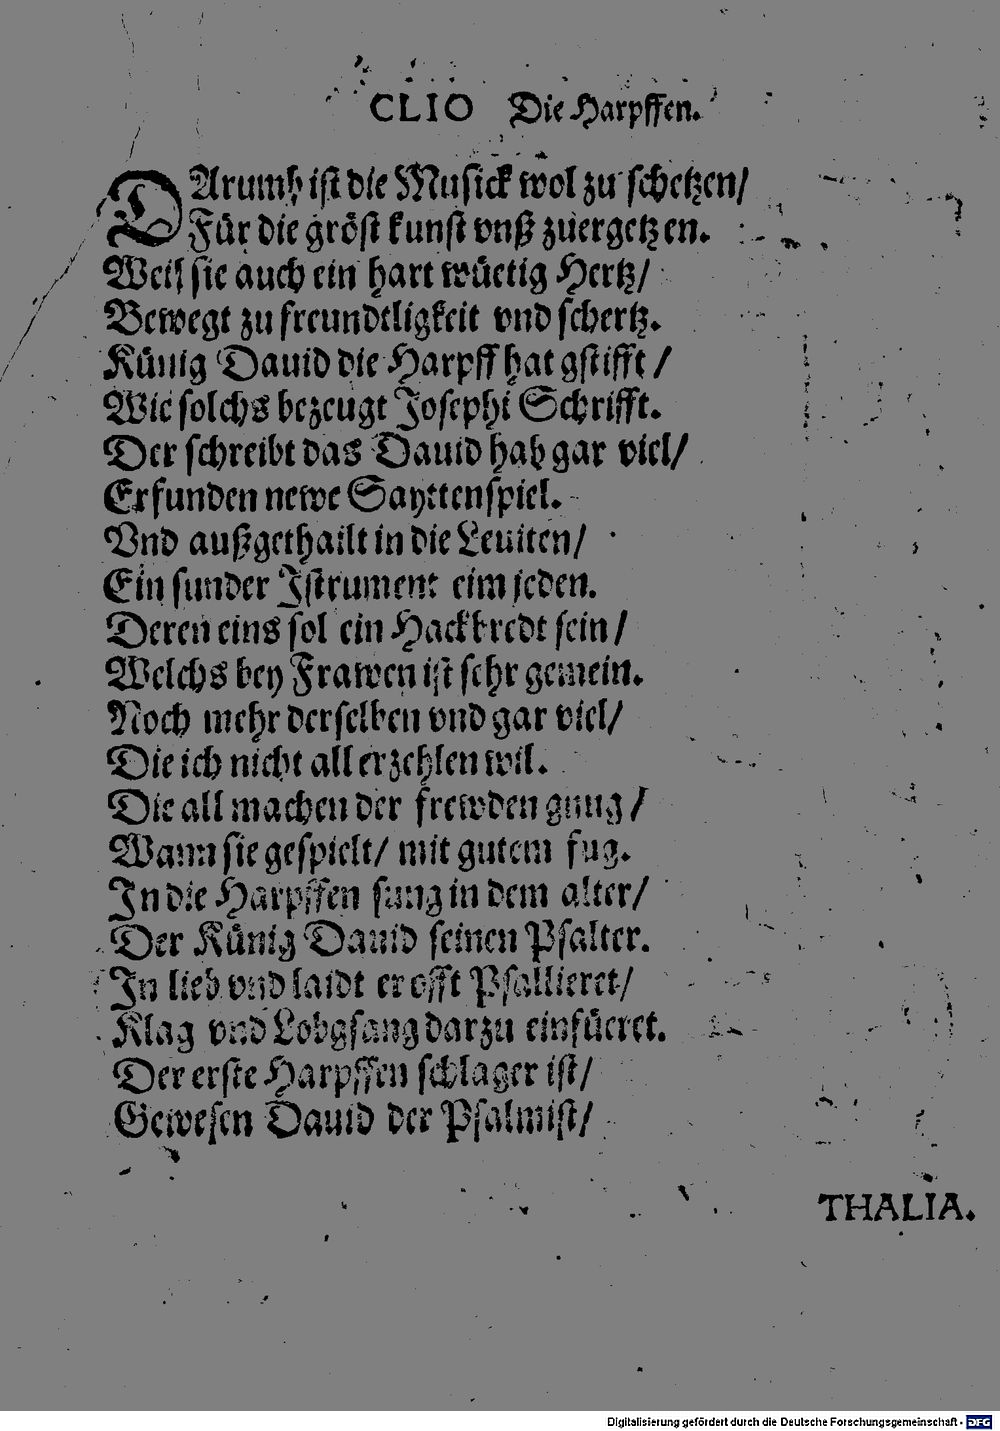 CLIO Die Harpffen.
DArumb ist die Musick wol zu schetzen/
Für die gröst kunst vnß zuergetzen.
Weil sie auch ein hart wüetig Hertz/
Bewegt zu freundtligkeit vnd schertz.
Künig Dauid die Harpff hat gstifft/
Wie solchs bezeugt Josephi Schrifft.
Der schreibt das Dauid hab gar viel/
Erfunden newe Sayttenspiel.
Vnd außgethailt in die Leuiten/
Ein sunder Jstrument eim jeden.
Deren eins sol ein Hackbredt sein/
Welchs bey Frawen ist sehr gemein.
Noch mehr derselben vnd gar viel/
Die ich nicht all erzehlen wil.
Die all machen der frewden gnug/
Wann sie gespielt/ mit gutem fug.
In die Harpffen sung in dem alter/
Der Künig Dauid seinen Psalter.
In lieb vnd laidt er offt Psallieret/
Klag vnd Lobgsang darzu einfüeret.
Der erste Harpffen schlager ist/
Gewesen Dauid der Psalmist/
THALIA.
Digitalisierung gefördert durch die Deutsche Forschungsgemeinschaft - DFG